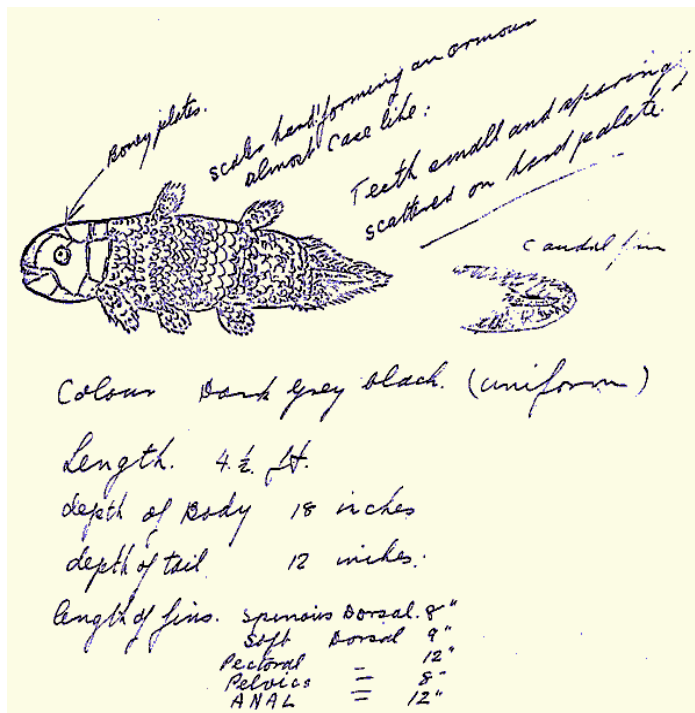 Boney plates.
scales hard forming an armour
almost case like:
Teeth small and sparing,
scattered on hard palate.
Caudal fin
Colour Dark Grey black. (uniform)
Length. 4 ½ ft.
depth of Body 18 inches
depth of tail 12 inches.
length of fins. Spinous Dorsal. 8"
Soft Dorsal 9"
Pectoral = 12"
Pelvics = 8"
ANAL = 12"